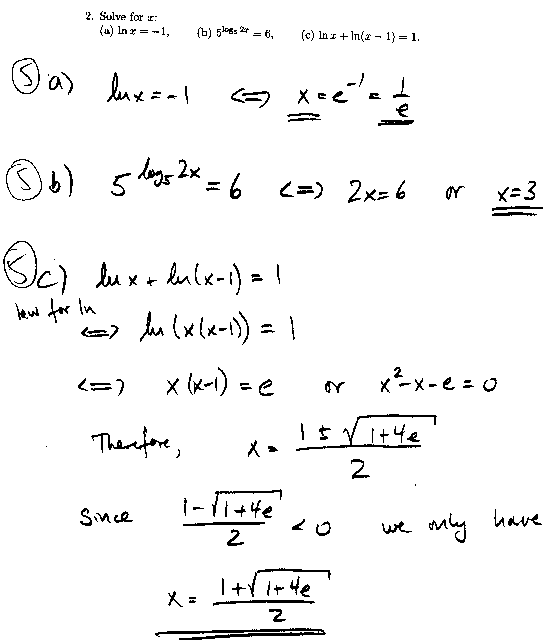 2. Solve for x:
(a) ln x = −1, (b) 5^{log₅ 2x} = 6, (c) ln x + ln(x − 1) = 1.
(5) a) ln x = -1 <=> x = e^{-1} = 1/e
(5) b) 5^{log₅ 2x} = 6 <=> 2x = 6 or x = 3
(5) c) ln x + ln(x-1) = 1
law for ln
<=> ln (x(x-1)) = 1
<=> x(x-1) = e or x² - x - e = 0
Therefore, x = (1 ± √(1+4e))/2
Since (1 - √(1+4e))/2 < 0 we only have
x = (1 + √(1+4e))/2